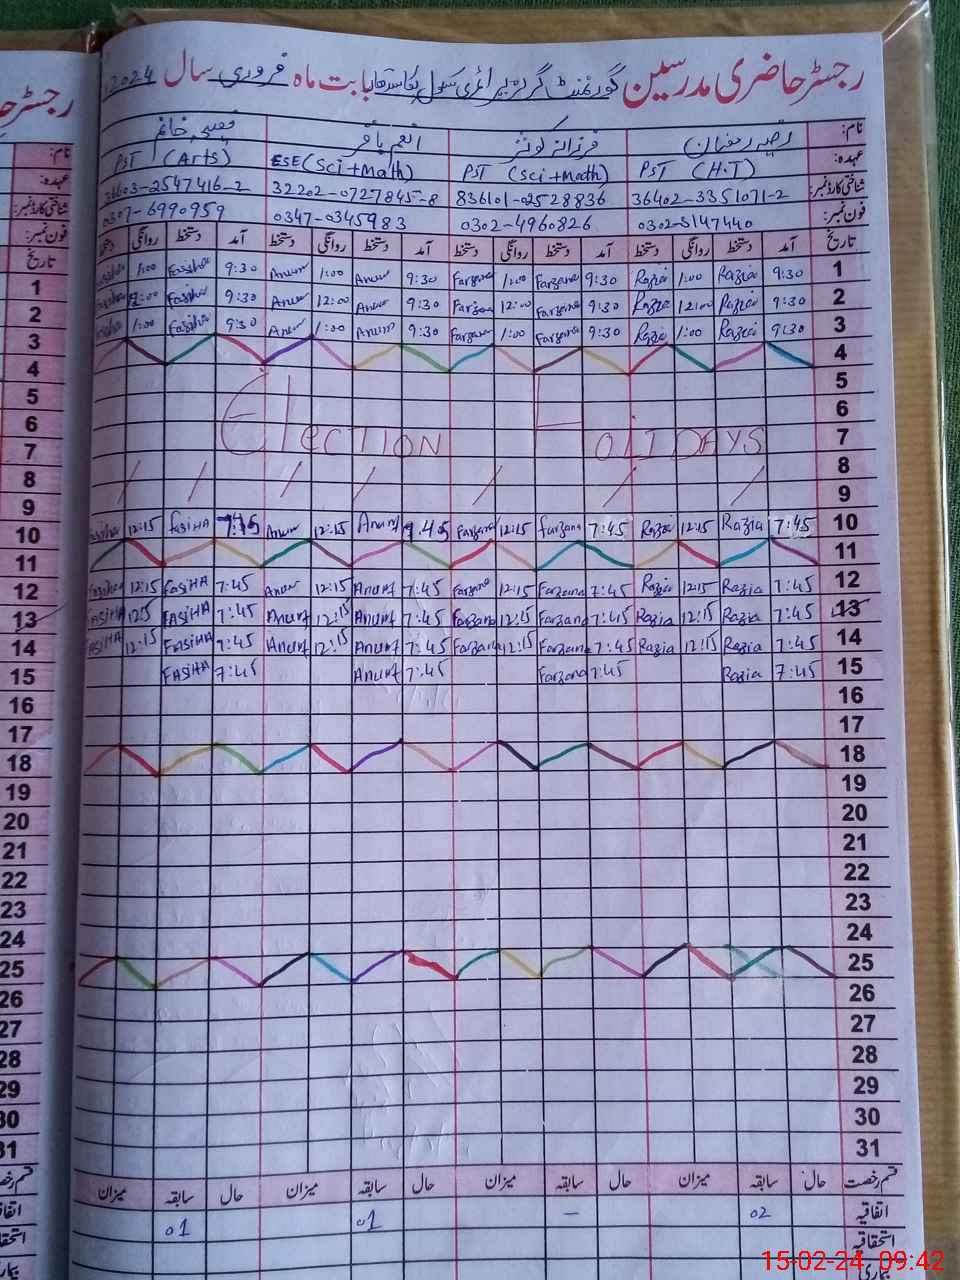 رجسٹر حاضری مدرسین گورنمنٹ گرلز پرائمری سکول بابت ماہ فروری سال 2024
نام: رضیہ رمضان فرزانہ کوثر انعم باقر فصیحہ خانم
عہدہ: PST (H.T) PST (Sci+Math) ESE (Sci+Math) PST (Arts)
شناختی کارڈ نمبر: 36402-3351071-2 836101-02528836 32202-0727845-8 36603-2547416-2
فون نمبر: 0302-5147440 0302-4960826 0347-0345983 0307-6990959
تاریخ آمد دستخط روانگی دستخط آمد دستخط روانگی دستخط آمد دستخط روانگی دستخط آمد دستخط روانگی دستخط
1 9:30 Razia 1:00 Razia 9:30 Farzana 1:00 Farzana 9:30 Anum 1:00 Anum 9:30 Fasiha 1:00 Fasiha
2 9:30 Razia 12:00 Razia 9:30 Farzana 12:00 Farzana 9:30 Anum 12:00 Anum 9:30 Fasiha 12:00 Fasiha
3 9:30 Razia 1:00 Razia 9:30 Farzana 1:00 Farzana 9:30 Anum 1:00 Anum 9:30 Fasiha 1:00 Fasiha
4
5
6
7 Election HoliDAYS
8
9
10 7:45 Razia 12:15 Razia 7:45 farzana 12:15 Farzana 7:45 Anum 12:15 Anum 7:45 FasiHA 12:15 Fasiha
11
12 7:45 Razia 12:15 Razia 7:45 Farzana 12:15 Farzana 7:45 Anum 12:15 Anum 7:45 FasiHA 12:15 Fasiha
13 7:45 Razia 12:15 Razia 7:45 Farzana 12:15 Farzana 7:45 Anum 12:15 Anum 7:45 FASIHA 12:15 FASIHA
14 7:45 Razia 12:15 Razia 7:45 Farzana 12:15 Farzana 7:45 Anum 12:15 Anum 7:45 FASIHA 12:15 FASIHA
15 7:45 Razia 7:45 Farzana 7:45 Anum 7:45 FASIHA
16
17
18
19
20
21
22
23
24
25
26
27
28
29
30
31
قسم رخصت حال سابقہ میزان حال سابقہ میزان حال سابقہ میزان حال سابقہ میزان
اتفاقیہ 02 – 01 01
استحقاقیہ
بیماری
15-02-24 09:42